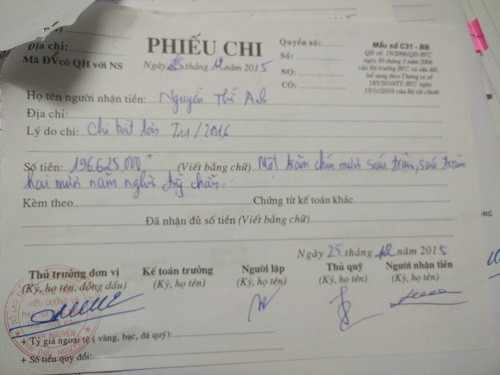 Địa chỉ:
Mã ĐVcó QH với NS
PHIẾU CHI
Ngày 25 tháng 12 năm 2015
Quyển số:
Số:
NỢ:
CÓ:
Mẫu số C31 - BB
QĐ số: 19/2006/QĐ-BTC
ngày 30 tháng 3 năm 2006
của Bộ trưởng BTC và sửa đổi,
bổ sung theo Thông tư số
185/2010/TT-BTC ngày
15/11/2010 của Bộ tài chính
Họ tên người nhận tiền: Nguyễn Thế Anh
Địa chỉ:
Lý do chi: Chi T11/2016
Số tiền: 196.625.000 (Viết bằng chữ) Một trăm chín mươi sáu triệu, sáu trăm
hai mươi năm nghìn chẵn
Kèm theo Chứng từ kế toán khác
Đã nhận đủ số tiền (Viết bằng chữ)
Ngày 25 tháng 12 năm 2015
Thủ trưởng đơn vị Kế toán trưởng Người lập Thủ quỹ Người nhận tiền
(Ký, họ tên, đóng dấu) (Ký, họ tên) (Ký, họ tên) (Ký, họ tên) (Ký, họ tên)
+ Tỷ giá ngoại tệ ( vàng, bạc, đá quý):
+ Số tiền quy đổi: